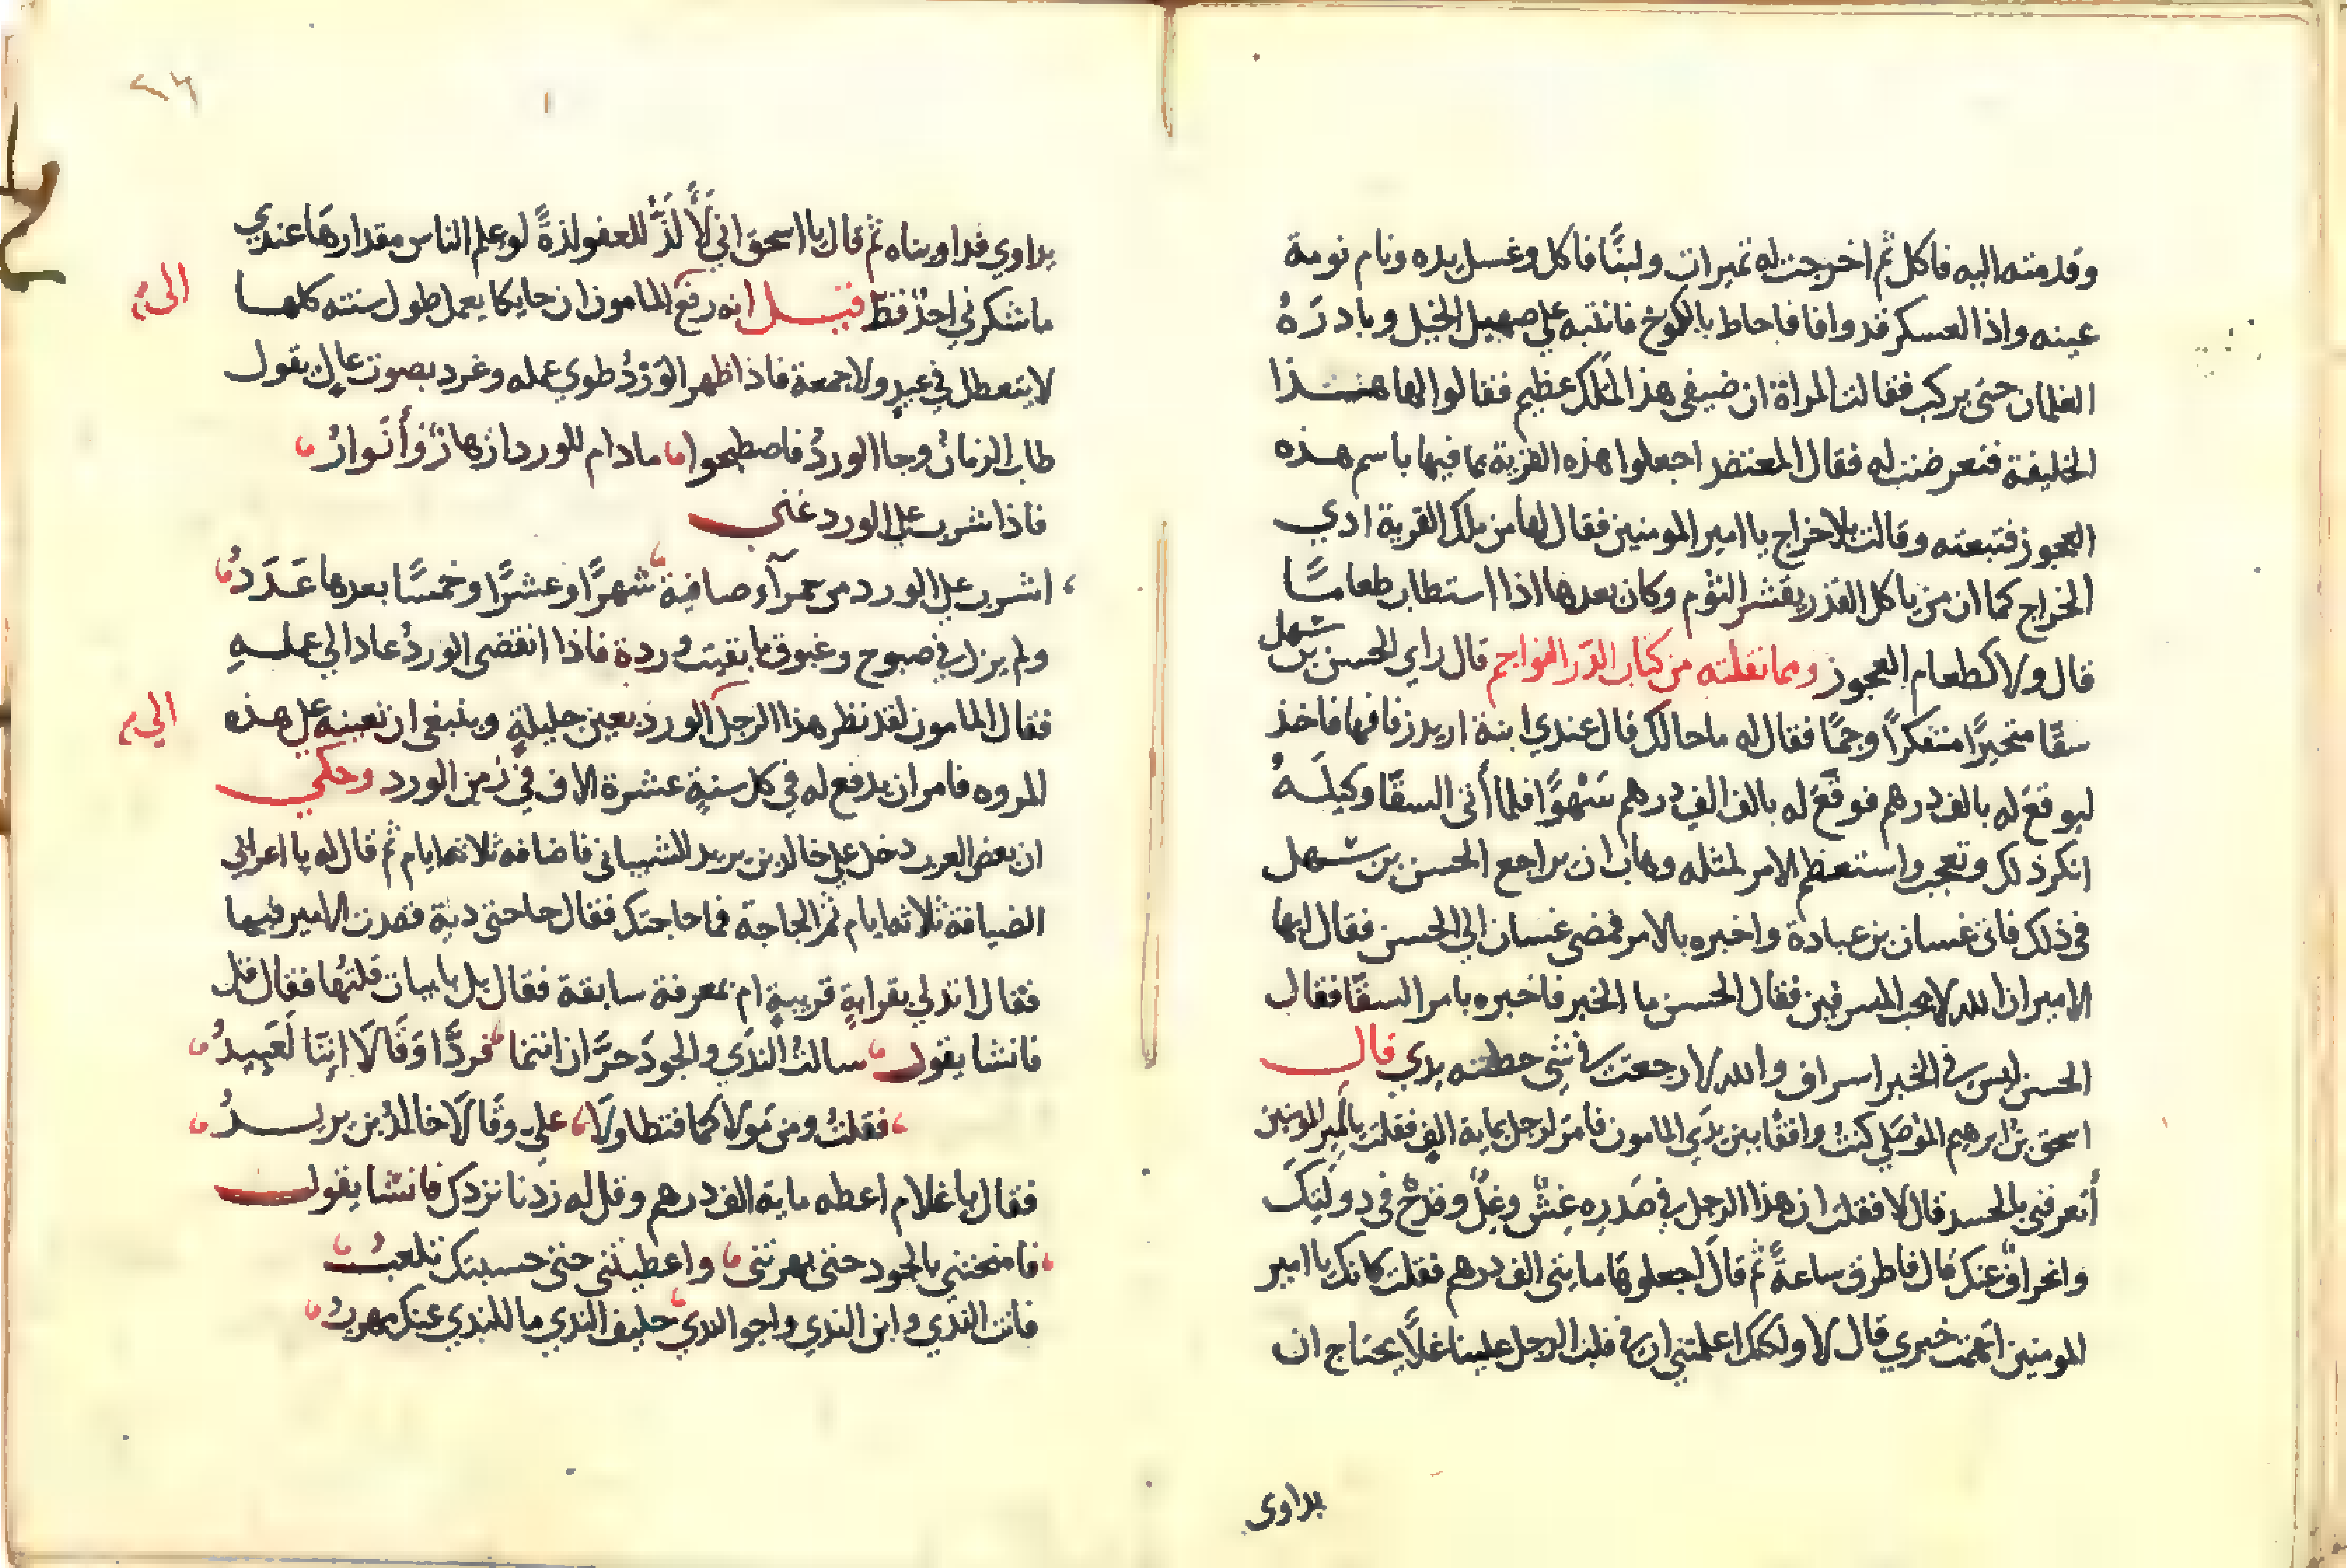 وقدمته اليه فاكل ثم اخرجت له تميرات ولبنًا فاكل وغسل يده ونام نومة
عينه واذا العسكر قد وافا فاحاط بالكوخ فانتبه على صهيل الخيل وبادرَهُ
الغلمان حتى يركب فقالت المراة ان ضيفي هذا لملك عظيم فقالوا لها هــذا
الخليفة فتعرضت له فقال المعتضد اجعلوا هذه القرية بما فيها باسم هـذه
العجوز فتبعته وقالت بلاخراج يا امير المومنين فقال لها من ملك القرية ادي
الخراج كما ان من ياكل القدر يقشر الثوم وكان بعدها اذا استطاب طعامًا
قال ولا كطعام العجوز ومما نقلته من كتاب الدر الفواجم قال راي الحسن بن سهل
سقّا متحيرًا متفكرًا وجمًا فقال له ما حالك قال عندي ابنة اريد زفافها فاخذ
ليوقع له بالف درهم فوقّعَ له بالف الف درهم سَهْوًا فلما أتى السقّا وكيلَهُ
انكر ذلك وتعجب واستعظم الامر لمثله وهاب ان يراجع الحسن بن سهل
في ذلك فاتى غسان بن عبادة واخبره بالامر فمضى غسان الي الحسن فقال ايها
الامير ان الله لا يحب المسرفين فقال الحسن ما الخبر فاخبره بامر السقّا فقال
الحسن ليس في الخير اسراف والله لا رجعت في شيٍ خطته يدي قال
اسحق بن ابرهيم الموصلي كنتُ واقفًا بين يدَي المامون فامر لرجل بماية الفٍ فقلت يا امير المومنين
أتعرفني بالحسد قال لا فقلت ان هذا الرجل في صَدره غِشّ وغِلٌّ وقدْحٌ في دولتِكَ
وانحرافٌ عنك قال فاطرق ساعةً ثم قال اجعلوها مايتى الف درهم فقلت كانك يا امير
المومنين اتهمت خبري قال لا ولكنك اعلمتني ان في قلب الرجل علينا غلًّا يحتاج ان
يداوى
٢١٦
يداوي فداويناه ثم قال يا اسحق اني لَأَلَذُّ للعفو لذةً لو علم الناس مقدارهَا عندي
ما شكرني احدٌ قط قيــل انه رفع للمامون ان حايكا يعمل طول سنته كلهــا
لا يتعطل في عيدٍ ولا جمعة فاذا ظهر الوَرْدُ طوي عمله وغرد بصوت عالٍ يقول
طاب الزمانُ وجا الوردُ فاصطبحوا ما دام للورد ازهارٌ وأَنوارُ
فاذا شرب على الورد غنى
اشرب على الورد من حمرآء صافية شهرًا وعشرًا وخمسًا بعدها عَدَدُ
ولم يزل في صبوح وغبوق ما بقيت وردة فاذا انقضى الوردُ عاد الي عملــهِ
فقال المامون لقد نظر هذا الرجل الورد بعين جليلةٍ وينبغي ان نعينه على هذه
المروه فامر ان يدفع له في كل سنةٍ عشرة الاف في زمن الورد وحكي
ان بعض العرب دخل على خالد بن يريد الشيبانى فاضافه ثلاثه ايام ثم قال له يا اعرابي
الضيافة ثلاثه ايام ثم الحاجة فما حاجتك فقال حاجتى دية قصدت الامير فيها
فقال اتدلي بقرابةٍ قريبةٍ ام بمعرفة سابقة فقال بل بابيات قلتُها فقال قل
فانشا يقول سالتُ الندَي والجودَ حرَّان انتما فردَّا وَقَالَا انِنَا لَعَبيدُ
فقلتُ ومن مَولاكما فتطاولَا على وقَالَا خالدُ بن يريــدُ
فقال يا غلام اعطه ماية الف درهم وقل له زدنا نزدك فانشا يقول
فامنحتني بالجود حتى بهرتني واعطيتني حتى حسبتك تلعبُ
فانت الندَي وابن الندي واخو الندي حليف الندي ما للندي عنك مهربُ